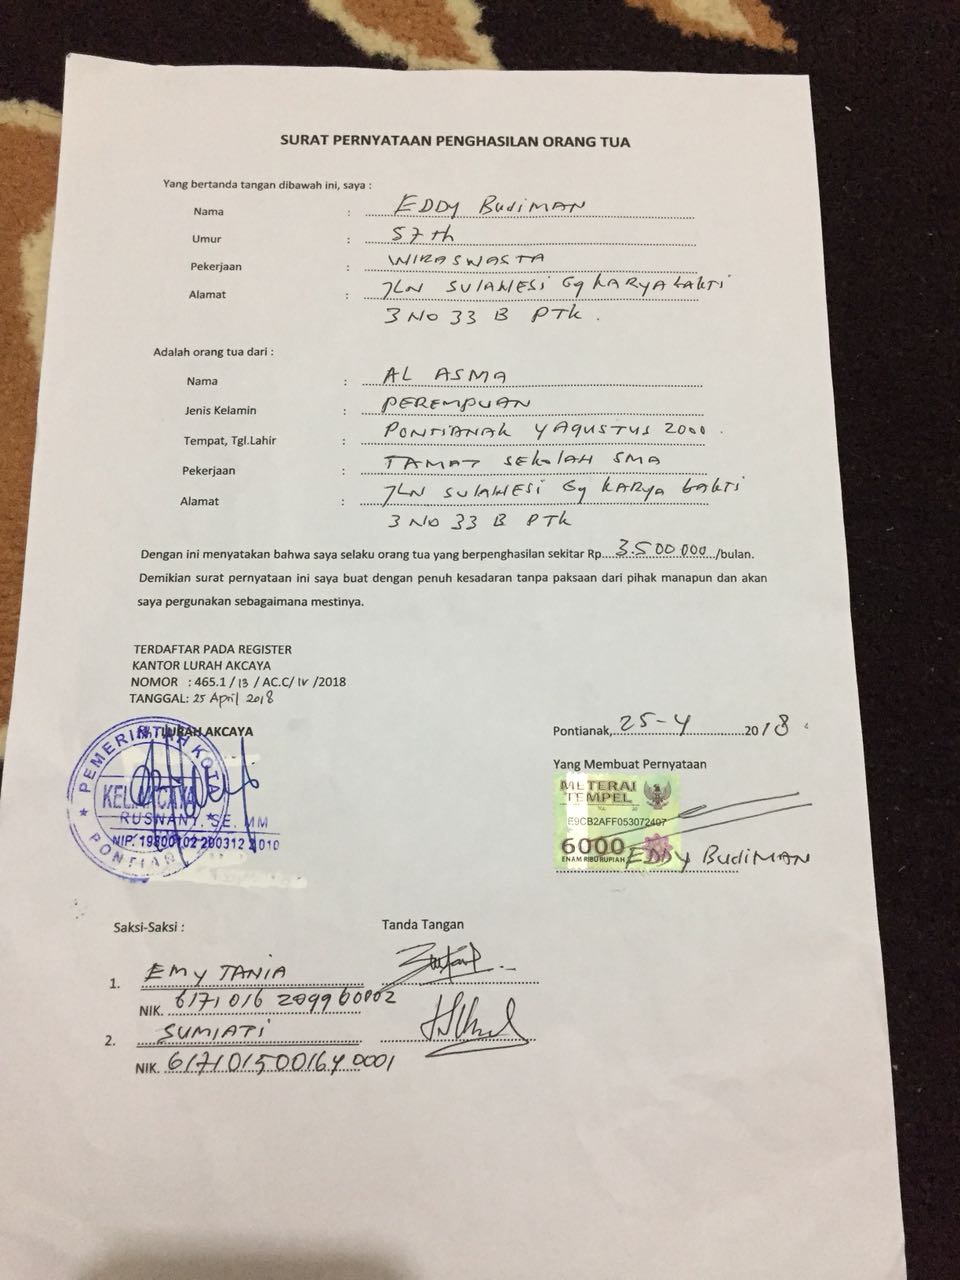 SURAT PERNYATAAN PENGHASILAN ORANG TUA
Yang bertanda tangan dibawah ini, saya :
Nama : EDDY BudiMAN
Umur : 57 th
Pekerjaan : WIRASWASTA
Alamat : JLN SULAWESI Gg KARYA bAKTI
3 NO 33 B PTK.
Adalah orang tua dari :
Nama : AL ASMA
Jenis Kelamin : PEREMPUAN
Tempat, Tgl.Lahir : PONTIANAK 4 AGUSTUS 2000.
Pekerjaan : TAMAT SEKOLAH SMA
Alamat : JLN SULAWESI Gg KARYA bAKTI
3 NO 33 B PTK
Dengan ini menyatakan bahwa saya selaku orang tua yang berpenghasilan sekitar Rp....3.500.000../bulan.
Demikian surat pernyataan ini saya buat dengan penuh kesadaran tanpa paksaan dari pihak manapun dan akan
saya pergunakan sebagaimana mestinya.
TERDAFTAR PADA REGISTER
KANTOR LURAH AKCAYA
NOMOR : 465.1 / 13 / AC.C/ IV /2018
TANGGAL: 25 April 2018
LURAH AKCAYA
PEMERINTAH KOTA
KEL. AKCAYA
RUSNANY, SE, MM
NIP. 19800102 200312 2 010
PONTIANAK
Pontianak, 25-4 2018
Yang Membuat Pernyataan
METERAI
TEMPEL
E9CB2AFF053072407
6000
ENAM RIBU RUPIAH
EDDY BudiMAN
Saksi-Saksi : Tanda Tangan
1. EMY TANIA
NIK. 6171016209960002
2. SUMIATI
NIK. 6171015001640001